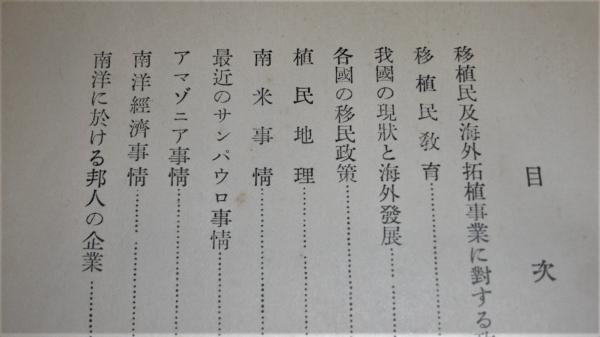 目次
移植民及海外拓植事業に對する
移植民教育
我國の現狀と海外發展
各國の移民政策
植民地理
南米事情
最近のサンパウロ事情
アマゾニア事情
南洋經濟事情
南洋に於ける邦人の企業